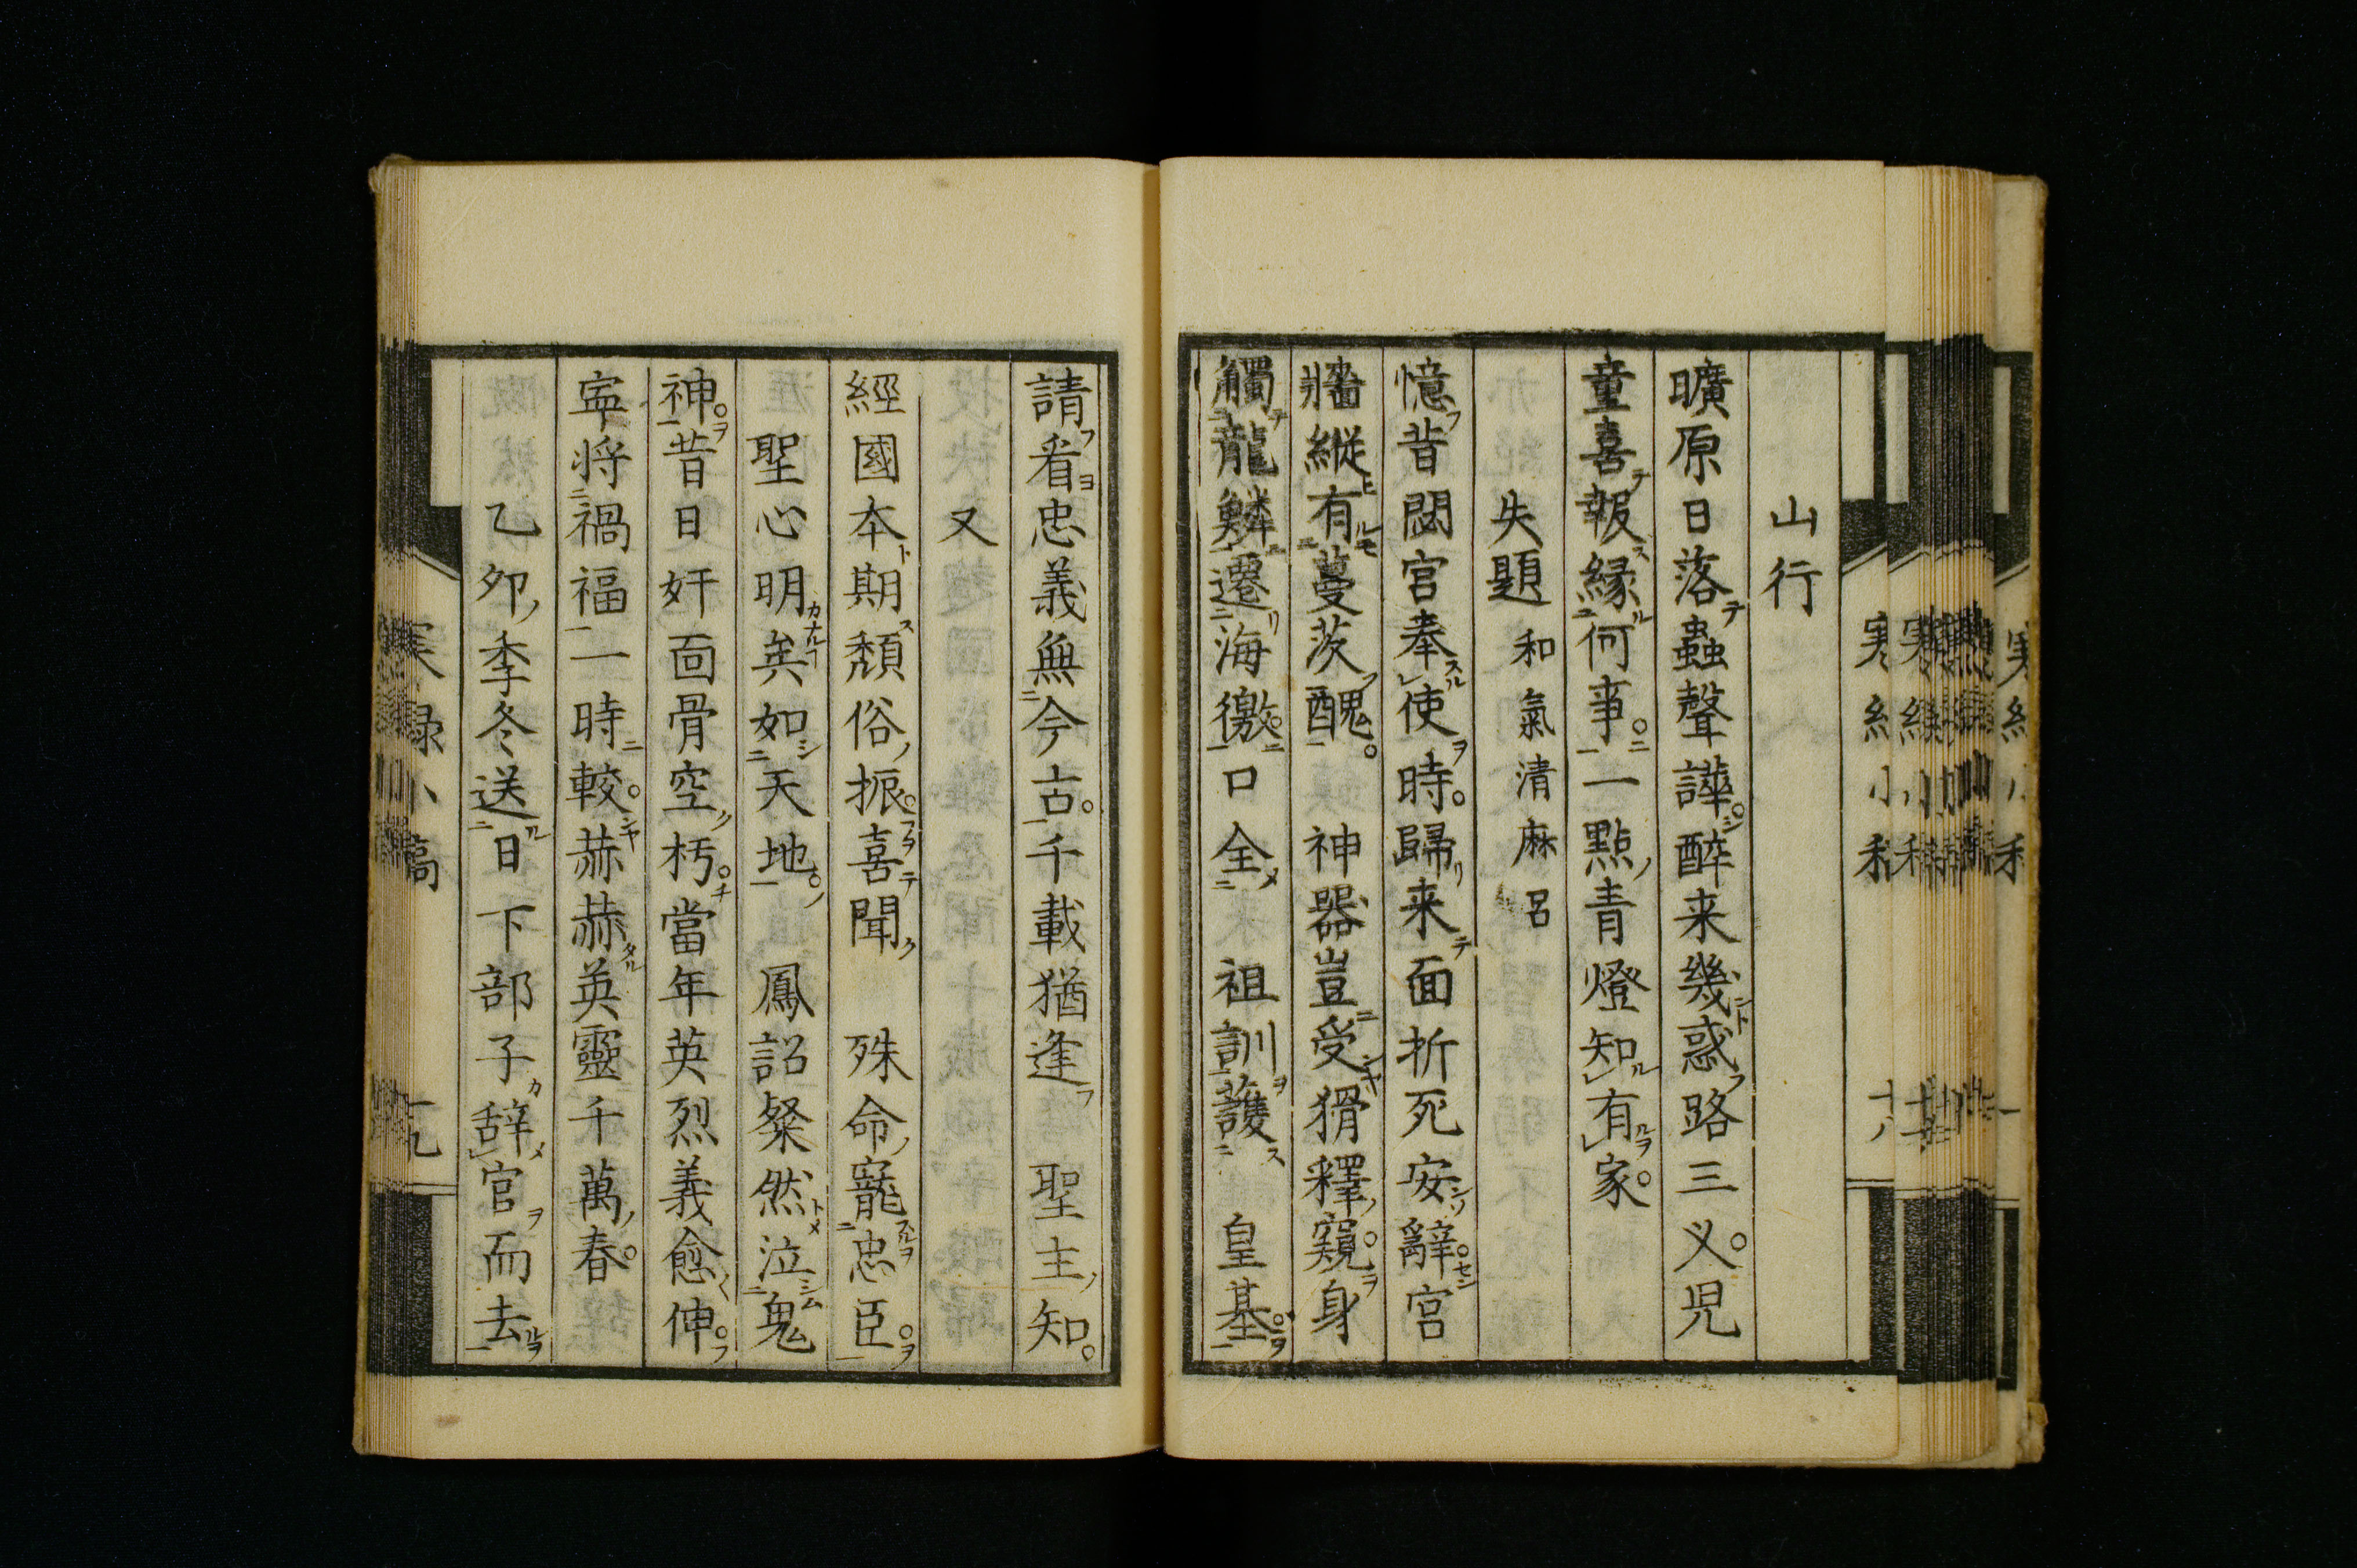 山行
曠原日落蟲聲譁醉来幾惑路三义児
童喜報縁何事一點青燈知有家
失題 和氣清麻呂
憶昔閟宮奉使時歸来面折死安辭宮
牆縦有蔓茨醜 神器豈受猾釋窺身
觸龍鱗遷海徼口全 祖訓護 皇基
請看忠義無今古千載猶逢 聖主知
又
經國本期頽俗振喜聞 殊命寵忠臣
聖心明矣如天地 鳳詔粲然泣鬼
神昔日奸面骨空朽當年英烈義愈伸
寧将禍福一時較赫赫英靈千萬春
乙夘季冬送日下部子辞官而去
寒緑小稿 十九